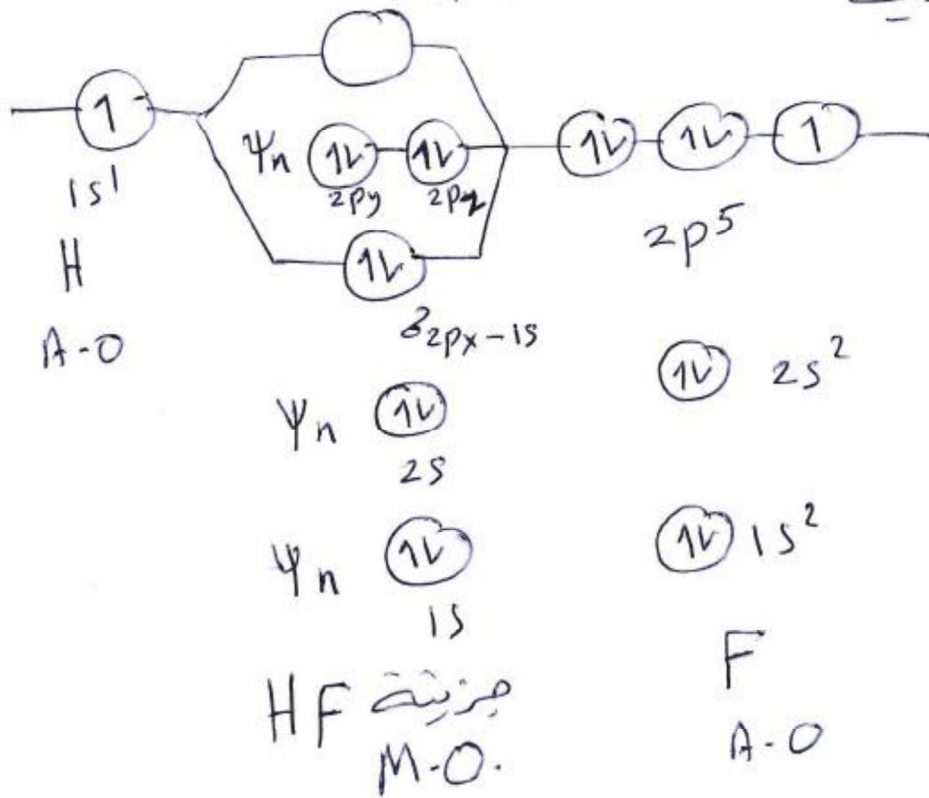 1s¹
H
A-O
ψn 1↓ 1↓
2py 2pz
1↓
δ2px-1s
ψn 1↓
2s
ψn 1↓
1s
HF جزيئة
M.O.
1↓ 1↓ 1
2p⁵
1↓ 2s²
1↓ 1s²
F
A-O